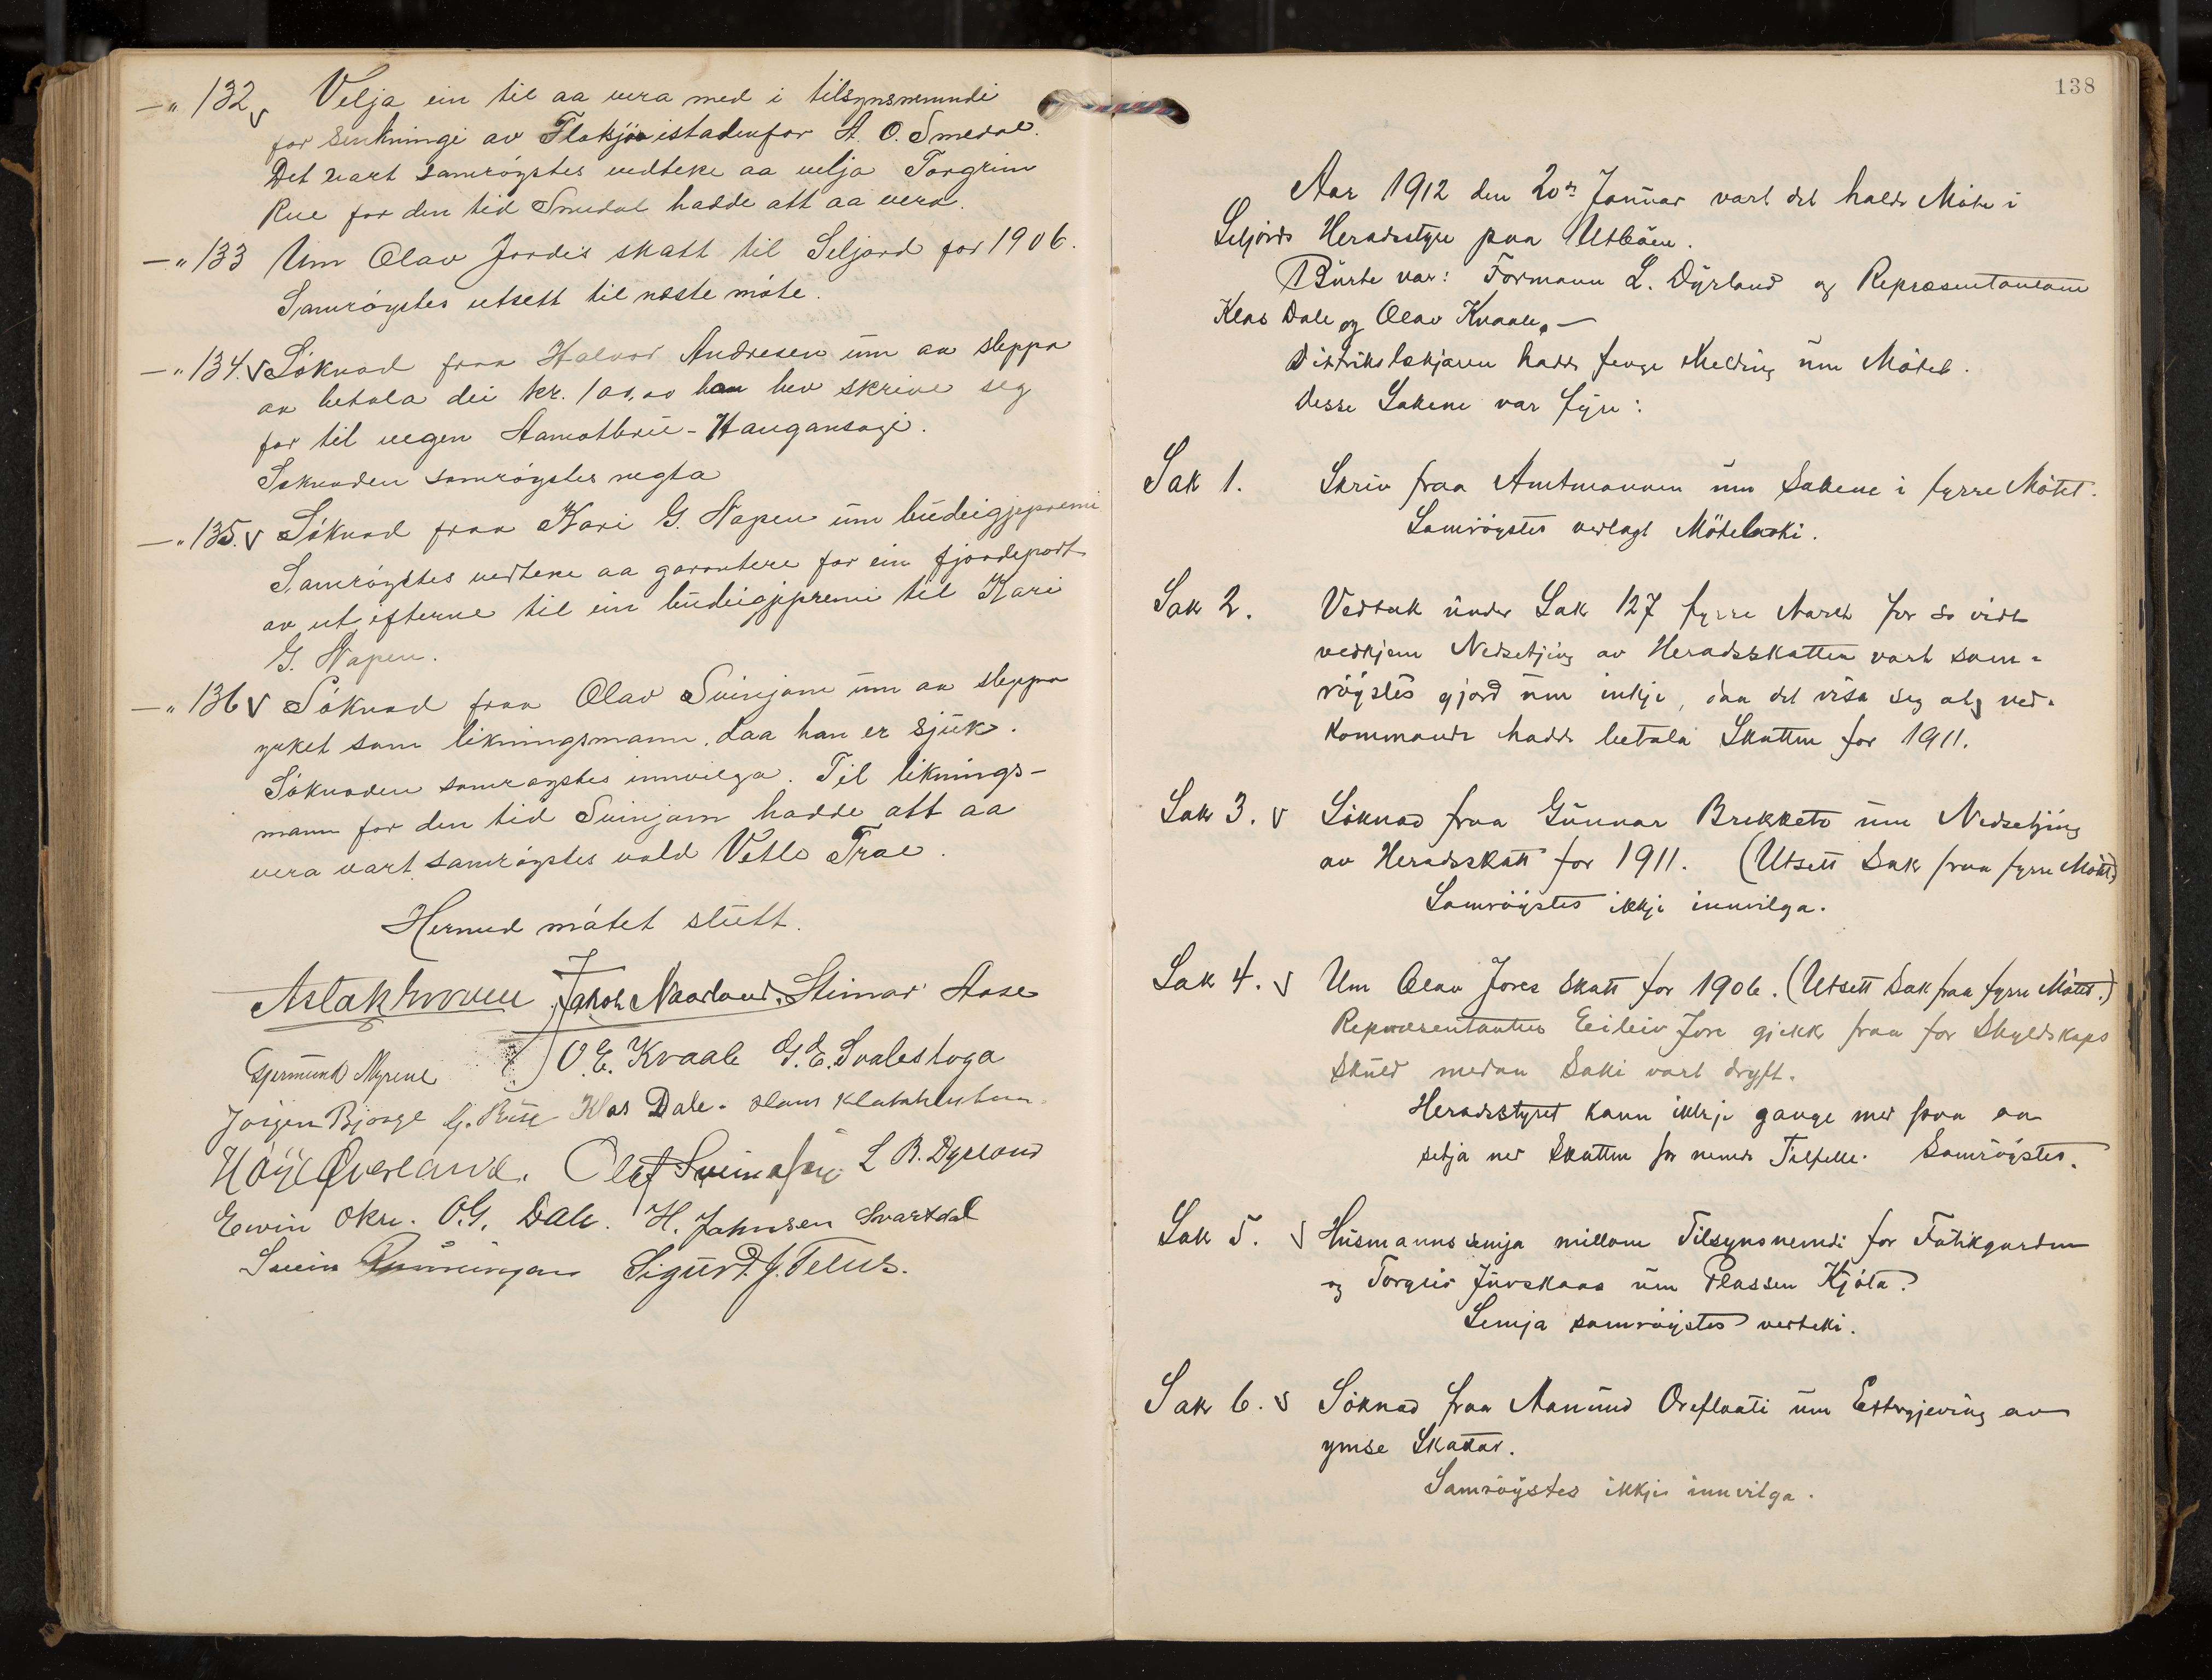 —„ 132 v Velja ein til aa vera med i tilsynsnemndi
for senkningi av Flaksjöa istadenfor A. O. Smedal.
Det vart samröystes vedteke aa velja Torgrim
Rue for den tid Smedal hadde att aa vera.
—„ 133 Um Olav Jordis skatt til Seljord for 1906.
Samröystes utsett til næste möte.
—„ 134. v Söknad fraa Halvor Andresen um aa sleppa
aa betala dei kr. 100,00 han hev skrive seg
for til vegen Aamotbru - Haugansagi.
Söknaden samröystes negta
—„ 135. v Söknad fraa Kari G. Napen um budeigjepremi
Samröystes vedteke aa garantere for ein fjordepart
av utgifterne til ein budeigjepremi til Kari
G. Napen.
—„ 136 v Söknad fraa Olav Svinjom um aa sleppa
yrket som likningsmann, daa han er sjuk.
Söknaden samröystes innvilga. Til liknings-
mann for den tid Svinjom hadde att aa
vera vart samröystes vald Vetle Trae.
Hermed mötet slutt.
Aslak Jakob Naarland. Steinar Aase
Gjermund Myrene O. E. Kvaale G. E. Svalestoga
Jörgen Bjorge G. Klas Dale. Hans
Höye Överland. Olaf L B. Dyrland
Eivin Økre. O.G. Dale. H. Johnsen Svartdal
Svein Sigurd J.
138
Aar 1912 den 20de Januar vart det halde Möte i
Seljords Heradsstyre paa Utböen.
Burte var: Formann L. Dyrland og Repræsentantane
Klas Dale og Olav Kvaale. —
Distriktslækjaren hadde fenge Melding um Mötet.
Desse Sakene var fyre:
Sak 1. Skriv fraa Amtmannen um Sakene i fyrre Mötet.
Samröystes vedlagt Möteboki.
Sak 2. Vedtak under Sak 127 fyrre Aaret for so vidt
vedkjem Nedsetjing av Heradsskatten vart sam-
röystes gjord um inkje, daa det visa seg at ved-
kommande hadde betala Skatten for 1911.
Sak 3. v Söknad fraa Gunnar Brekketo um Nedsetjing
av Heradsskatt for 1911. (Utsett Sak fraa fyrre Mötet)
Samröystes ikkje innvilga.
Sak 4. v Um Olav Jores Skatt for 1906. (Utsett Sak fraa fyrre Mötet.)
Repræsentanten Eileiv Jore gjekk fraa for Skyldskaps
Skuld medan Saki vart dryft.
Heradsstyret kann ikkje gange med paa aa
setja ned Skatten for nemde Tilfelle. Samröystes.
Sak 5. v Husmannssemja millom Tilsynsnemdi for Fatikgarden
og Torgeir Juvskaas um Plassen Kjöta.
Semja samröystes vedteki.
Sak 6. v Söknad fraa Aamund Oreflaati um Ettergjeving av
ymse Skattar.
Samröystes ikkje innvilga.